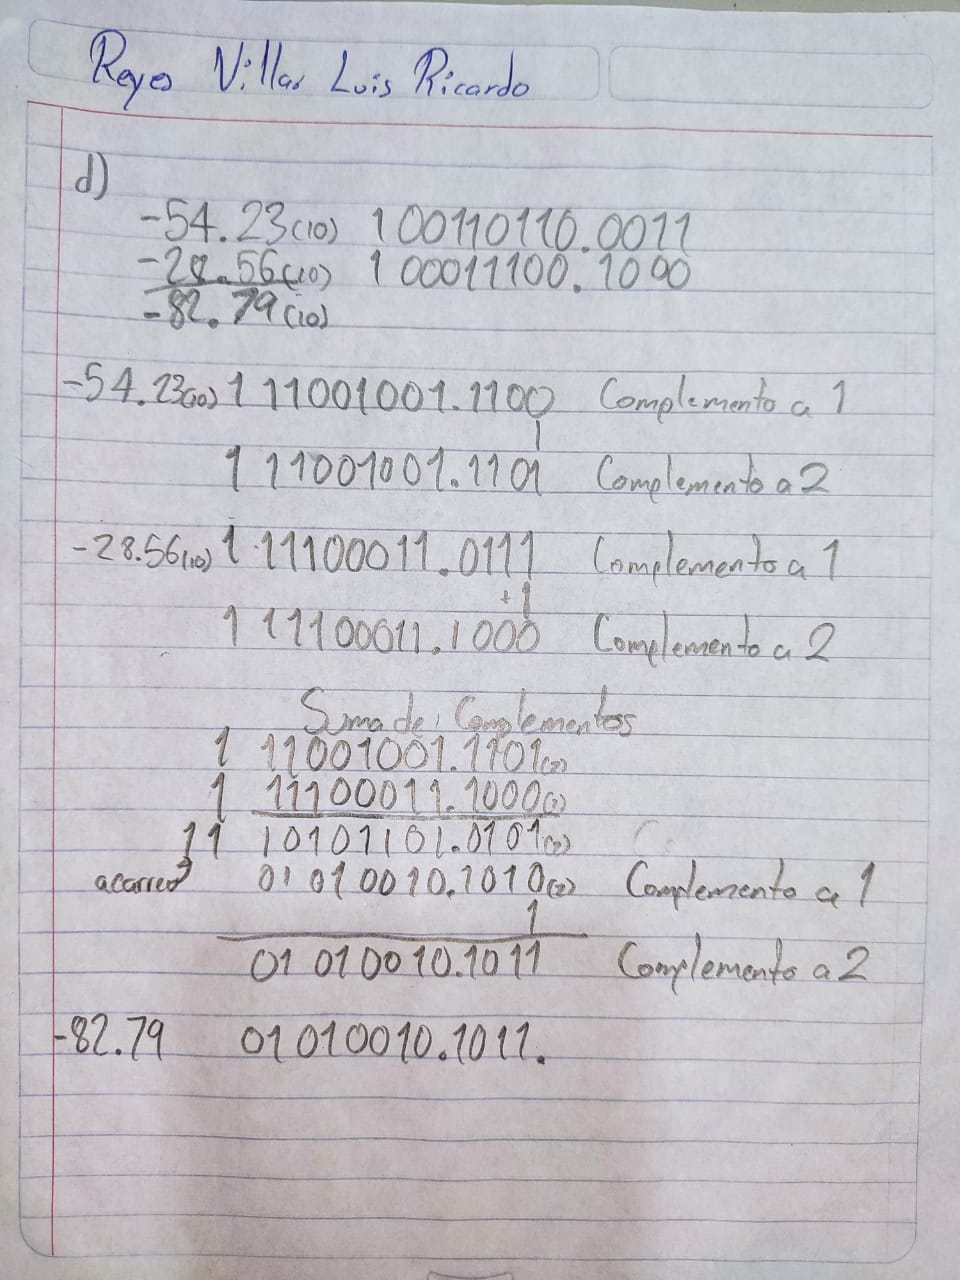 Reyes Villar Luis Ricardo
d)
-54.23(10) 1 00110110.0011
-28.56(10) 1 00011100.1000
-82.79(10)
-54.23(10) 1 11001001.1100 Complemento a 1
1
1 11001001.1101 Complemento a 2
-28.56(10) 1 11100011.0111 Complemento a 1
+1
1 11100011.1000 Complemento a 2
Suma de Complementos
1 11001001.1101(2)
1 11100011.1000(2)
11 10101101.0101(2)
acarreo 01010010.1010(2) Complemento a 1
1
01010010.1011 Complemento a 2
-82.79 01010010.1011.